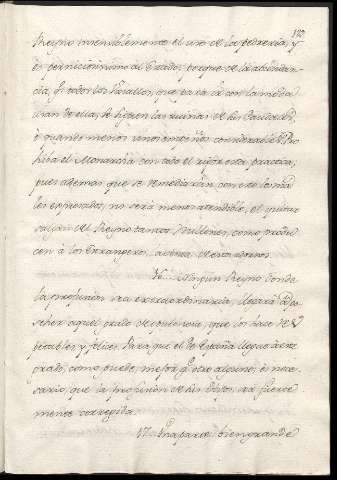 Reyno insensiblemente el uso de la pedreria, y
es perniciosisimo al Estado; porque de la abundan-
cia, de todos los Vasallos, que para ir con la moda
usan de ella, se siguen las ruinas de sus Caudales,
ò quando menos unos empeños considerables. Pro-
hiba el Monarca con todo el rigor esta practica;
pues ademas que se remediarán con esto los ma-
les expresados, no será menos atendible, el que no
salgan del Reyno tantos Millones, como produ-
cen à los Extrangeros, la venta de estos adornos.
16. Ningun Reyno donde
la profusion sea extraordinaria, llegará à po-
seher aquel grado de opulencia, que los hace res-
petables y felices. Para que el de España llegue à este
grado, como puede, mejor que otro alguno; es nece-
sario, que la profusion de sus hijos, sea fuerte-
mente corregida.
17. Una parte bien grande